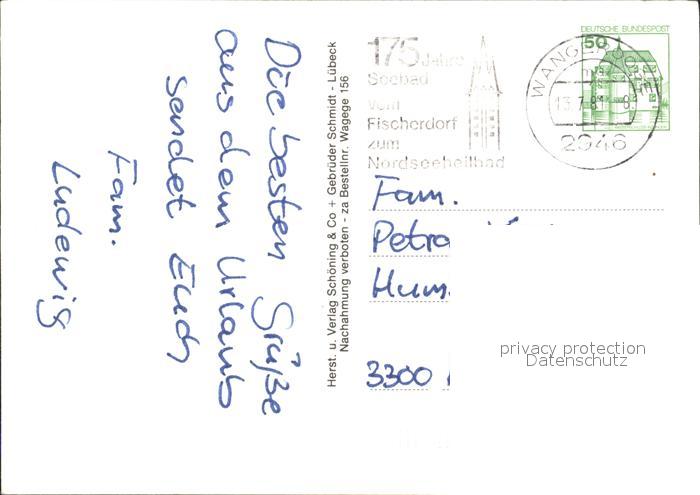 Die besten Grüße
aus dem Urlaub
sendet Euch
Fam.
Ludewig
Herst. u. Verlag Schöning & Co + Gebrüder Schmidt - Lübeck
Nachahmung verboten - za Bestellnr. Wagege 156
175 Jahre
Seebad
vom
Fischerdorf
zum
Nordseeheilbad
WANGEROOGE
13.7.81
2946
DEUTSCHE BUNDESPOST
50
Fam.
Petra
Hum
3300
privacy protection
Datenschutz